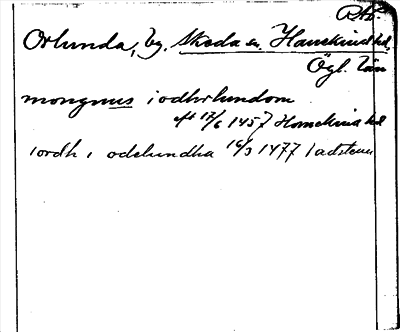 RAp.
Orlunda, by, Skeda sn, Hanekinds hd.
Ögl. län
mongnus i odhrlundom
eft 17/6 1457 Hanekinds hd
iordh i odelundha 16/3 1477 Vadstena